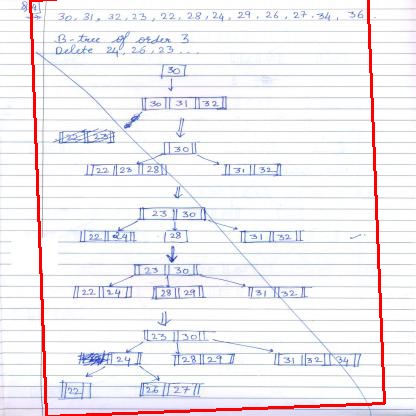 30, 31, 32, 23, 22, 28, 24, 29, 26, 27, 34, 36
B-tree of order 3
Delete 24, 26, 23 ...
30
30 31 32
22 23
30
22 23 28 31 32
23 30
22 24 28 31 32
23 30
22 24 28 29 31 32
23 30
24 28 29 31 32 34
22 26 27